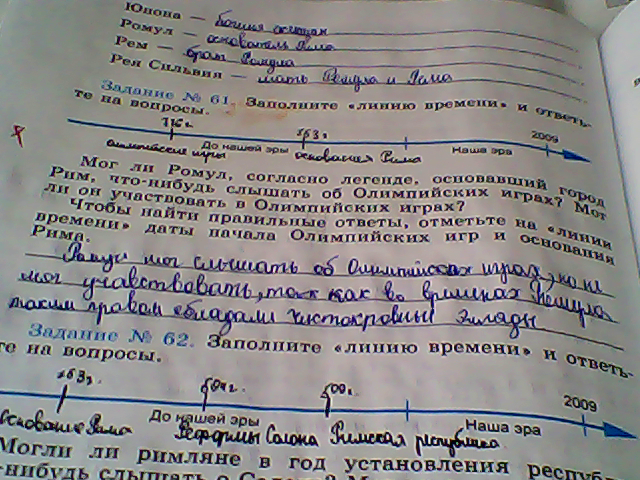 Юнона — богиня женщин
Ромул — основатель Рима
Рем — брат Ромула
Рея Сильвия — мать Ремула и Рема
Задание № 61. Заполните «линию времени» и ответь-
те на вопросы.
776г. 753г. 2009
До нашей эры Наша эра
олимпийские игры основания Рима
Мог ли Ромул, согласно легенде, основавший город
Рим, что-нибудь слышать об Олимпийских играх? Мог
ли он участвовать в Олимпийских играх?
Чтобы найти правильные ответы, отметьте на «линии
времени» даты начала Олимпийских игр и основания
Рима.
Ромул мог слышать об Олимпийских играх, но не
мог учавствовать, так как во временах Ремула
таким правом обладали чистокровные Эллады
Задание № 62. Заполните «линию времени» и ответь-
те на вопросы.
753г. 594г. 509г. 2009
До нашей эры Наша эра
Основание Рима Реформы Солона Римская республика
Могли ли римляне в год установления республ
-нибудь слышать о